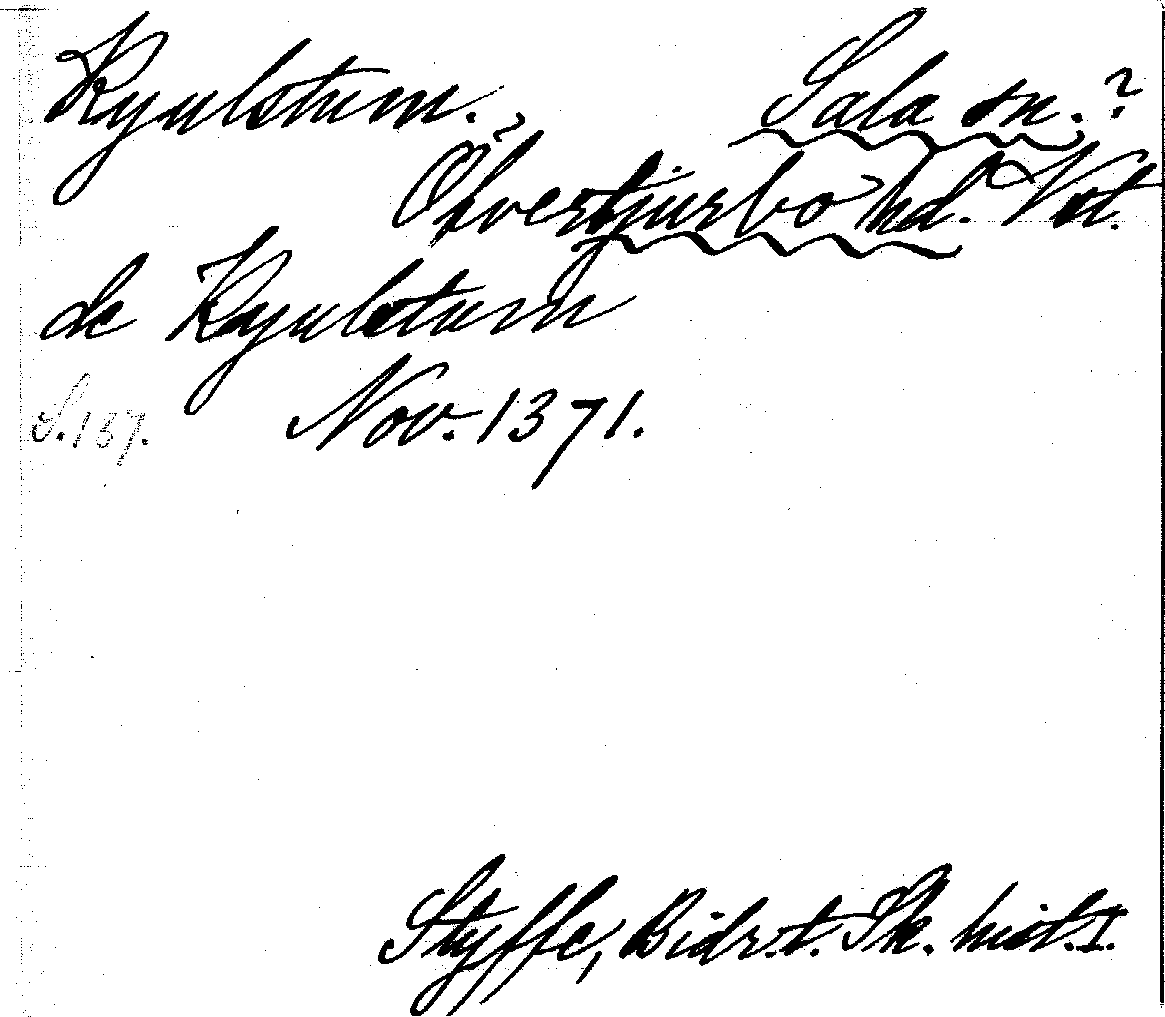 Kyulstum. Sala sn.?
Öfvertjurbo hd. Vst.
de Kyulstum
S. 137. Nov. 1371.
Styffe, Bidr. t. Sk. hist. I.